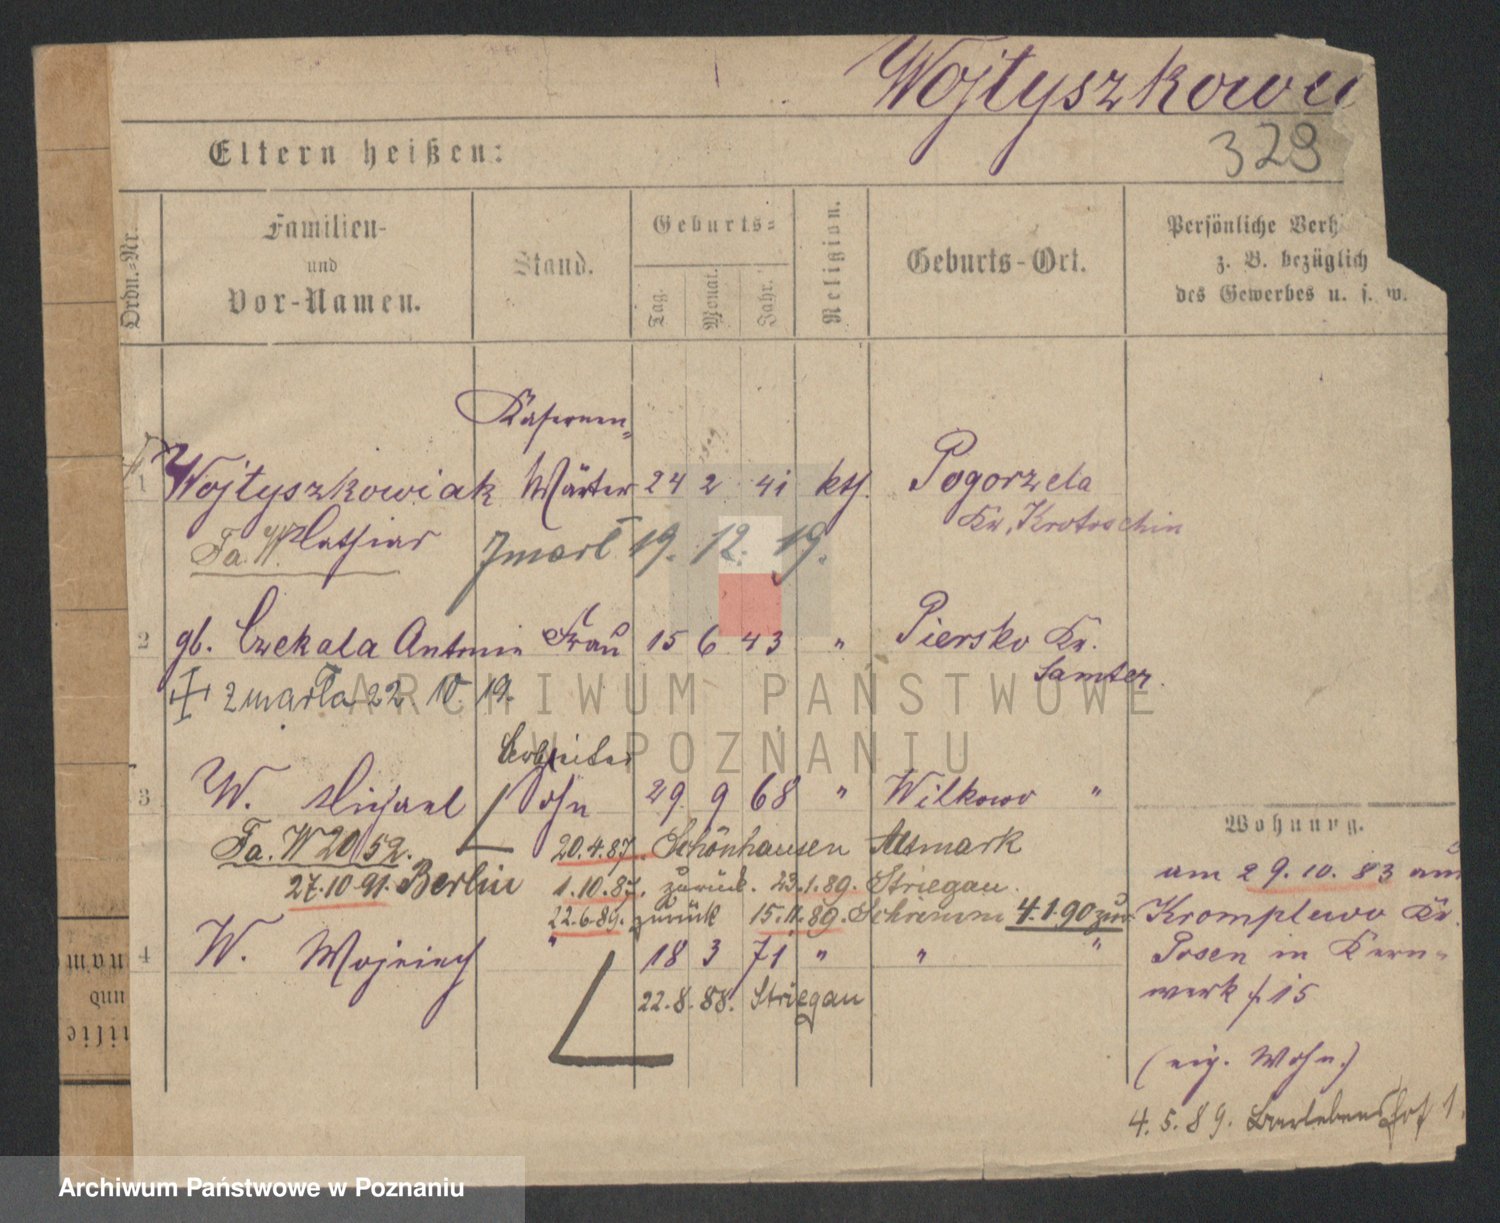 Wojtyszkowi
329
Eltern heißen:
Ordn.-Nr.
Familien-
und
Vor-Namen.
Stand.
Geburts-
Tag.
Monat.
Jahr.
Religion.
Geburts-Ort.
Persönliche Verh
z. B. bezüglich
des Gewerbes u. s. w.
Kasernen-
1 Wojtyszkowiak Wärter 24 2 41 kth. Pogorzela
Kr. Krotoschin
Fa. W. Mathias zmarł 19. 12. 19.
2 gb. Czekala Antonie Frau 15 6 43 " Piersko Kr.
Samter.
zmarła 22. 10 19.
Arbeiter
3 W. Michael Sohn 29. 9 68 " Wilkowo "
Fa. W 20/52. 20.4.87. Schönhausen Altmark
27.10.91. Berlin 1.10.87. zurück. 23.1.89. Striegau.
22.6.89. zurück 15.11.89. Schrimm 4.1.90 zur.
4 W. Wojciech " 18 3 71 " " "
22.8.88. Striegau
Wohnung.
am 29.10.83 aus
Kromplewo Kr.
Posen in Kern-
werk f. 15
(eig. Wohn.)
4.5.89. Barlebenshof 1.
ARCHIWUM PAŃSTWOWE
W POZNANIU
Archiwum Państwowe w Poznaniu